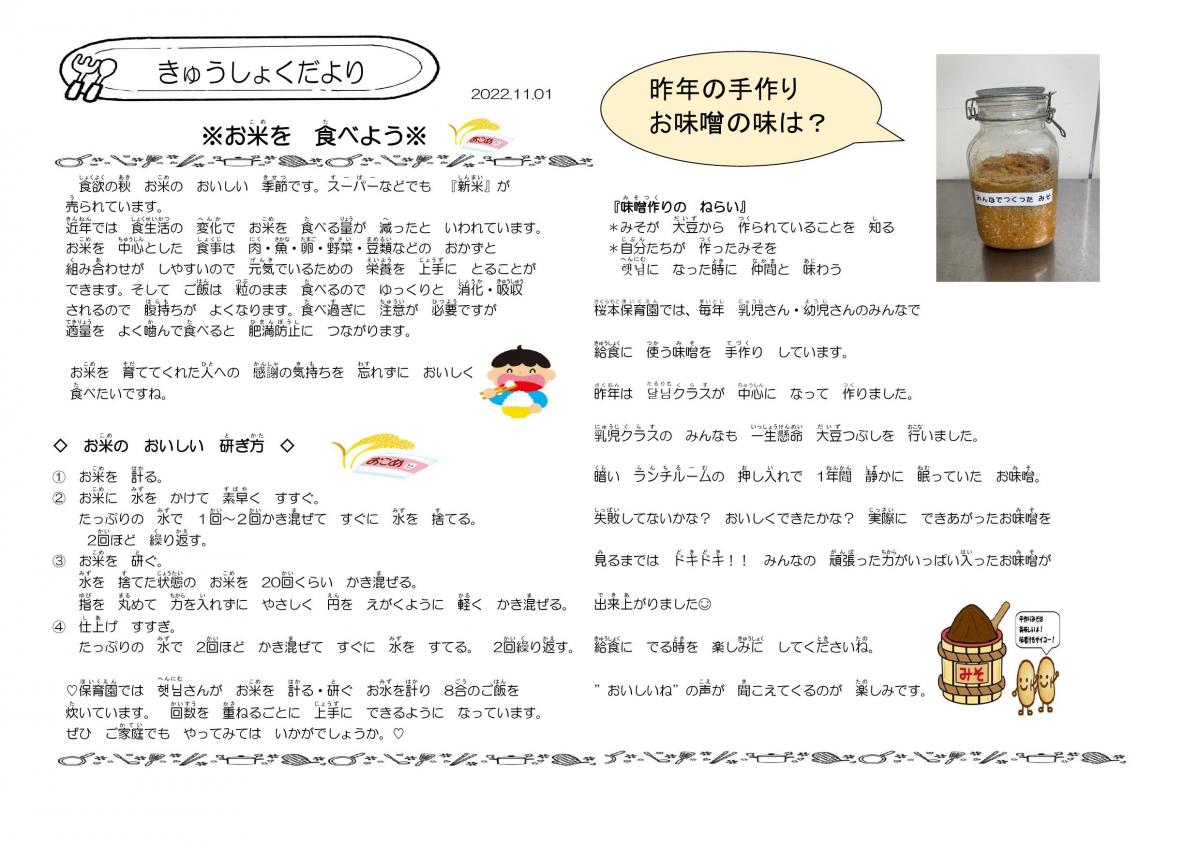 きゅうしょくだより
2022,11.01
※お米を 食べよう※
おこめ
食欲の秋 お米の おいしい 季節です。スーパーなどでも 『新米』が
売られています。
近年では 食生活の 変化で お米を 食べる量が 減ったと いわれています。
お米を 中心とした 食事は 肉・魚・卵・野菜・豆類などの おかずと
組み合わせが しやすいので 元気でいるための 栄養を 上手に とることが
できます。そして ご飯は 粒のまま 食べるので ゆっくりと 消化・吸収
されるので 腹持ちが よくなります。食べ過ぎに 注意が 必要ですが
適量を よく噛んで食べると 肥満防止に つながります。
お米を 育ててくれた人への 感謝の気持ちを 忘れずに おいしく
食べたいですね。
◇ お米の おいしい 研ぎ方 ◇
おこめ
① お米を 計る。
② お米に 水を かけて 素早く すすぐ。
たっぷりの 水で 1回～2回かき混ぜて すぐに 水を 捨てる。
2回ほど 繰り返す。
③ お米を 研ぐ。
水を 捨てた状態の お米を 20回くらい かき混ぜる。
指を 丸めて 力を入れずに やさしく 円を えがくように 軽く かき混ぜる。
④ 仕上げ すすぎ。
たっぷりの 水で 2回ほど かき混ぜて すぐに 水を すてる。 2回繰り返す。
♡保育園では 햇님さんが お米を 計る・研ぐ お水を計り 8合のご飯を
炊いています。 回数を 重ねるごとに 上手に できるように なっています。
ぜひ ご家庭でも やってみては いかがでしょうか。♡
昨年の手作り
お味噌の味は？
みんなでつくった みそ
『味噌作りの ねらい』
＊みそが 大豆から 作られていることを 知る
＊自分たちが 作ったみそを
햇님に なった時に 仲間と 味わう
桜本保育園では、毎年 乳児さん・幼児さんのみんなで
給食に 使う味噌を 手作り しています。
昨年は 달님クラスが 中心に なって 作りました。
乳児クラスの みんなも 一生懸命 大豆つぶしを 行いました。
暗い ランチルームの 押し入れで 1年間 静かに 眠っていた お味噌。
失敗してないかな？ おいしくできたかな？ 実際に できあがったお味噌を
見るまでは ドキドキ！！ みんなの 頑張った力がいっぱい入ったお味噌が
出来上がりました☺
給食に でる時を 楽しみに してくださいね。
”おいしいね”の声が 聞こえてくるのが 楽しみです。
みそ
手作りみそは
美味しいよ！